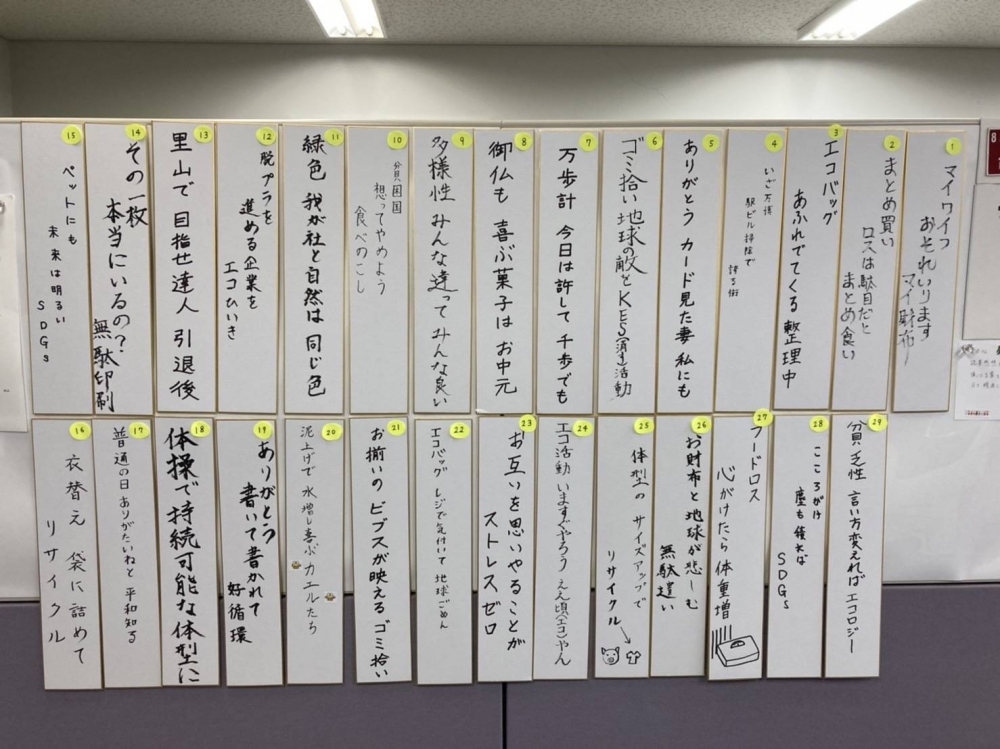 1
マイワイフ
おそれいります
マイ財布
2
まとめ買い
ロスは駄目だと
まとめ食い
3
エコバッグ
あふれでてくる 整理中
4
いざ万博
駅ビル掃除で
誇る街
5
ありがとう カード見た妻 私にも
6
ゴミ拾い 地球の敵を KES(消す)活動
7
万歩計 今日は許して 千歩でも
8
御仏も 喜ぶ菓子は お中元
9
多様性 みんな違って みんな良い
10
貧困国
想ってやめよう
食べのこし
11
緑色 我が社と自然は 同じ色
12
脱プラを
進める企業を
エコひいき
13
里山で 目指せ達人 引退後
14
その一枚
本当にいるの?
無駄印刷
15
ペットにも
未来は明るい
SDGs
16
衣替え 袋に詰めて
リサイクル
17
普通の日 ありがたいねと 平和知る
18
体操で持続可能な体型に
19
ありがとう
書いて書かれて
好循環
20
泥上げで 水増し喜ぶ カエルたち
21
お揃いの ビブスが映える ゴミ拾い
22
エコバッグ レジで気付いて 地球ごめん
23
お互いを思いやることが
ストレスゼロ
24
エコ活動 いますぐやろう ええ頃(エコ)やん
25
体型の サイズアップで
リサイクル
26
お財布と 地球が悲しむ
無駄遣い
27
フードロス
心がけたら 体重増
28
こころがけ
塵も積れば
SDGs
29
貧乏性 言い方変えれば エコロジー